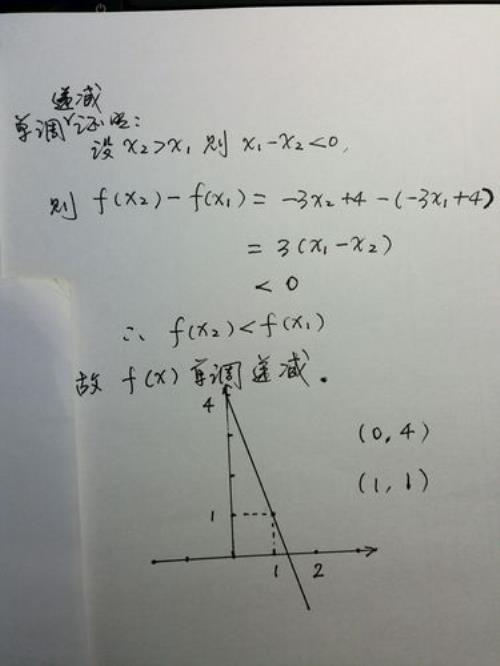 递减
单调证明:
设 x₂>x₁ 则 x₁-x₂<0,
则 f(x₂)-f(x₁)= -3x₂+4-(-3x₁+4)
= 3(x₁-x₂)
< 0
∴ f(x₂)<f(x₁)
故 f(x) 单调递减.
4
(0,4)
(1,1)
1
1 2